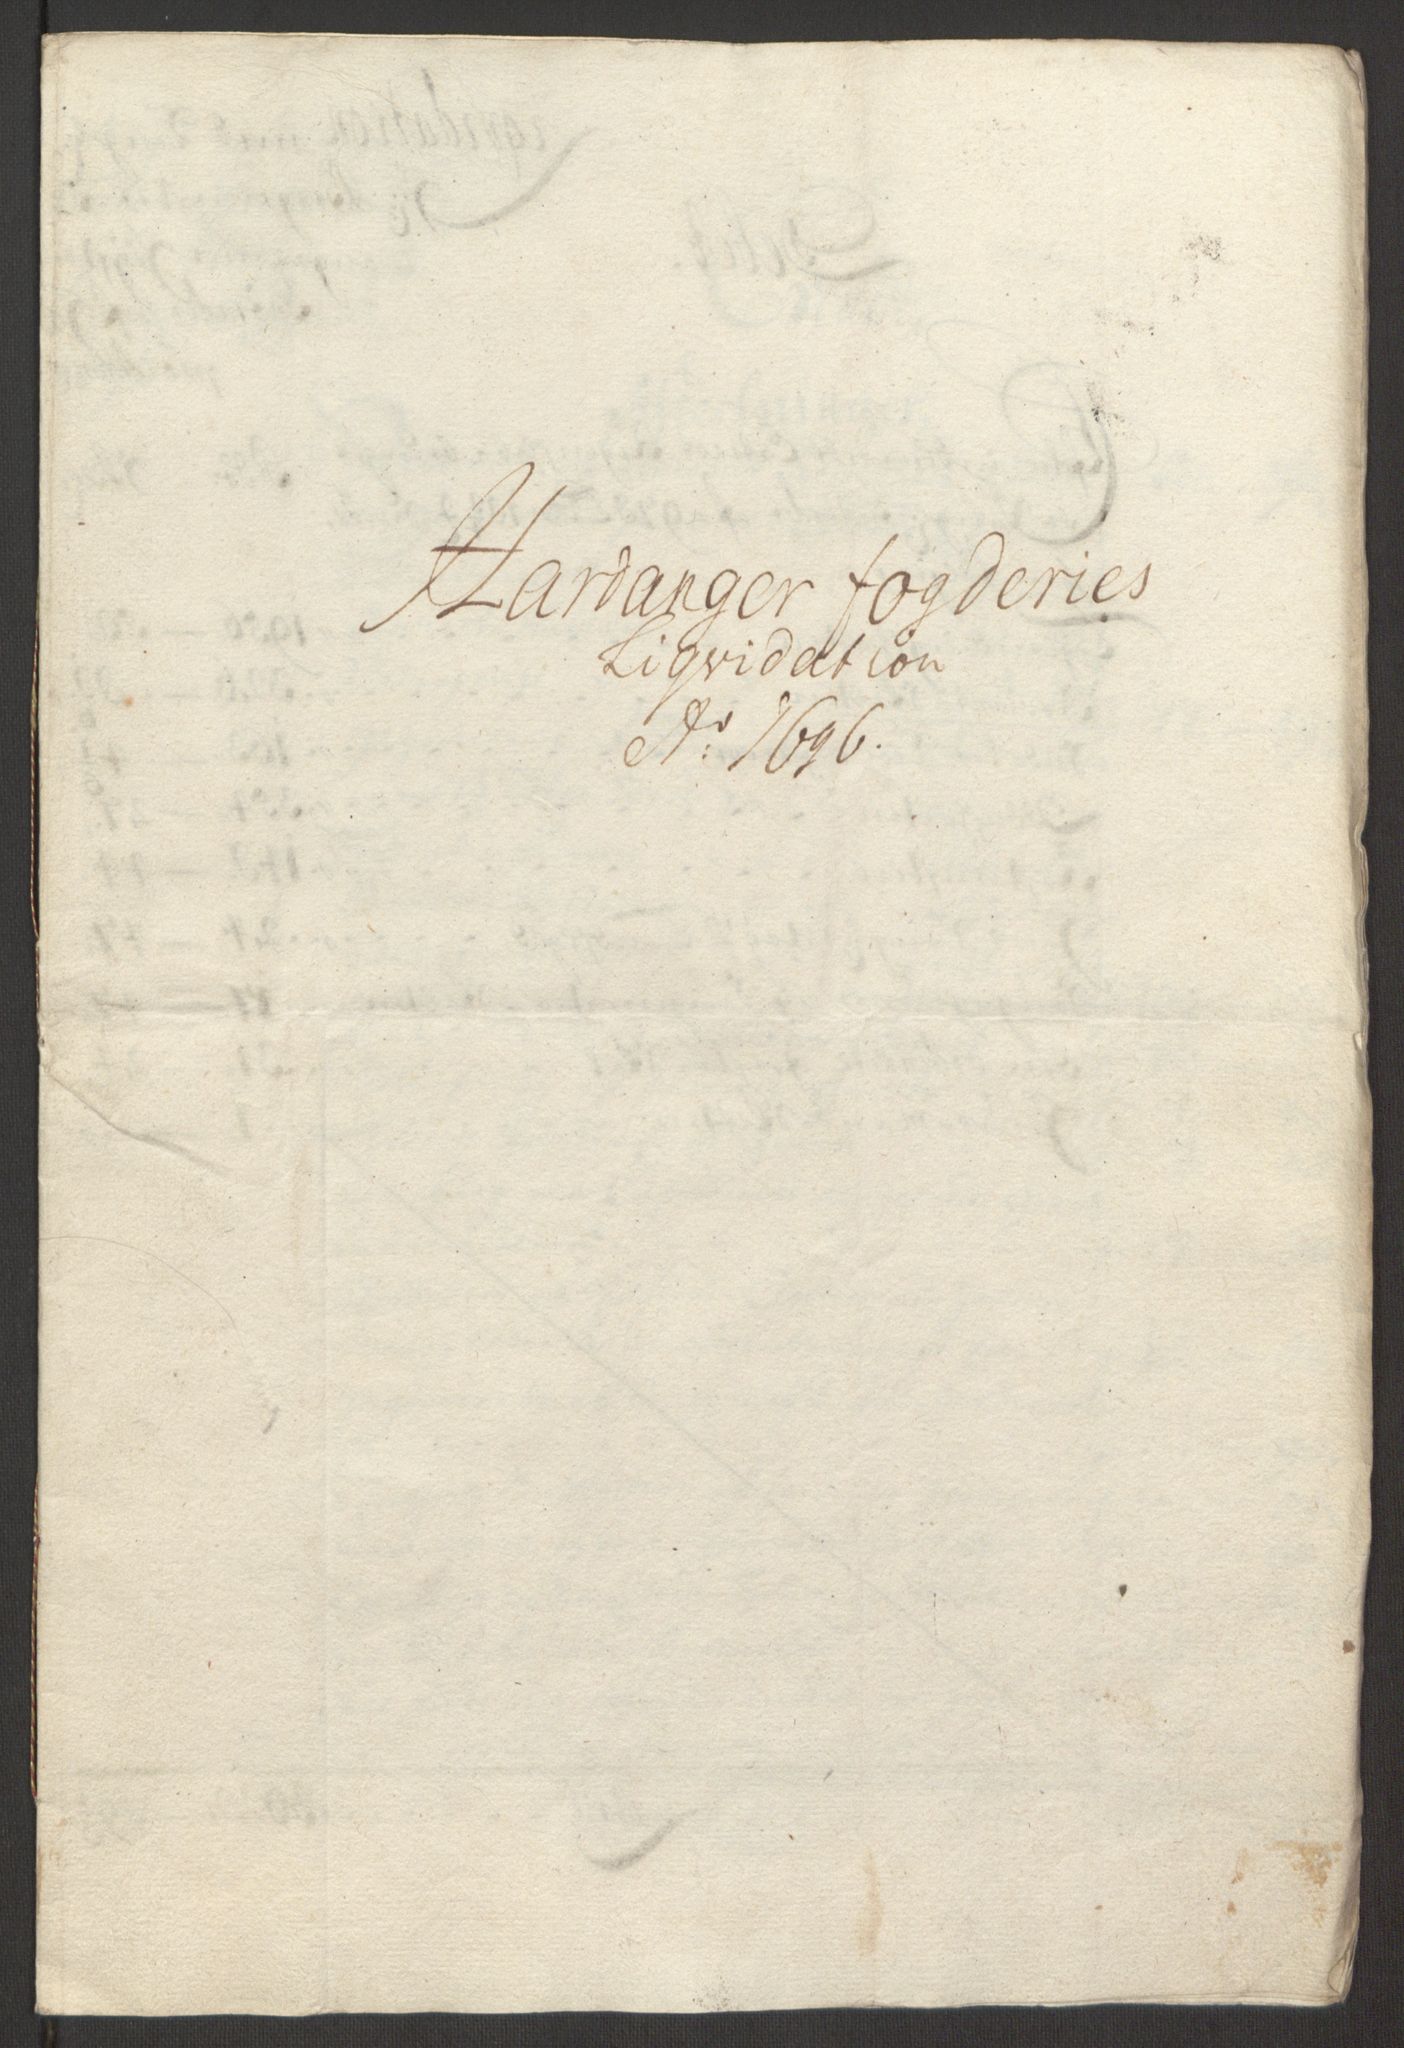 Hardanger fogderies
Liqvidation
Ao: 1696.